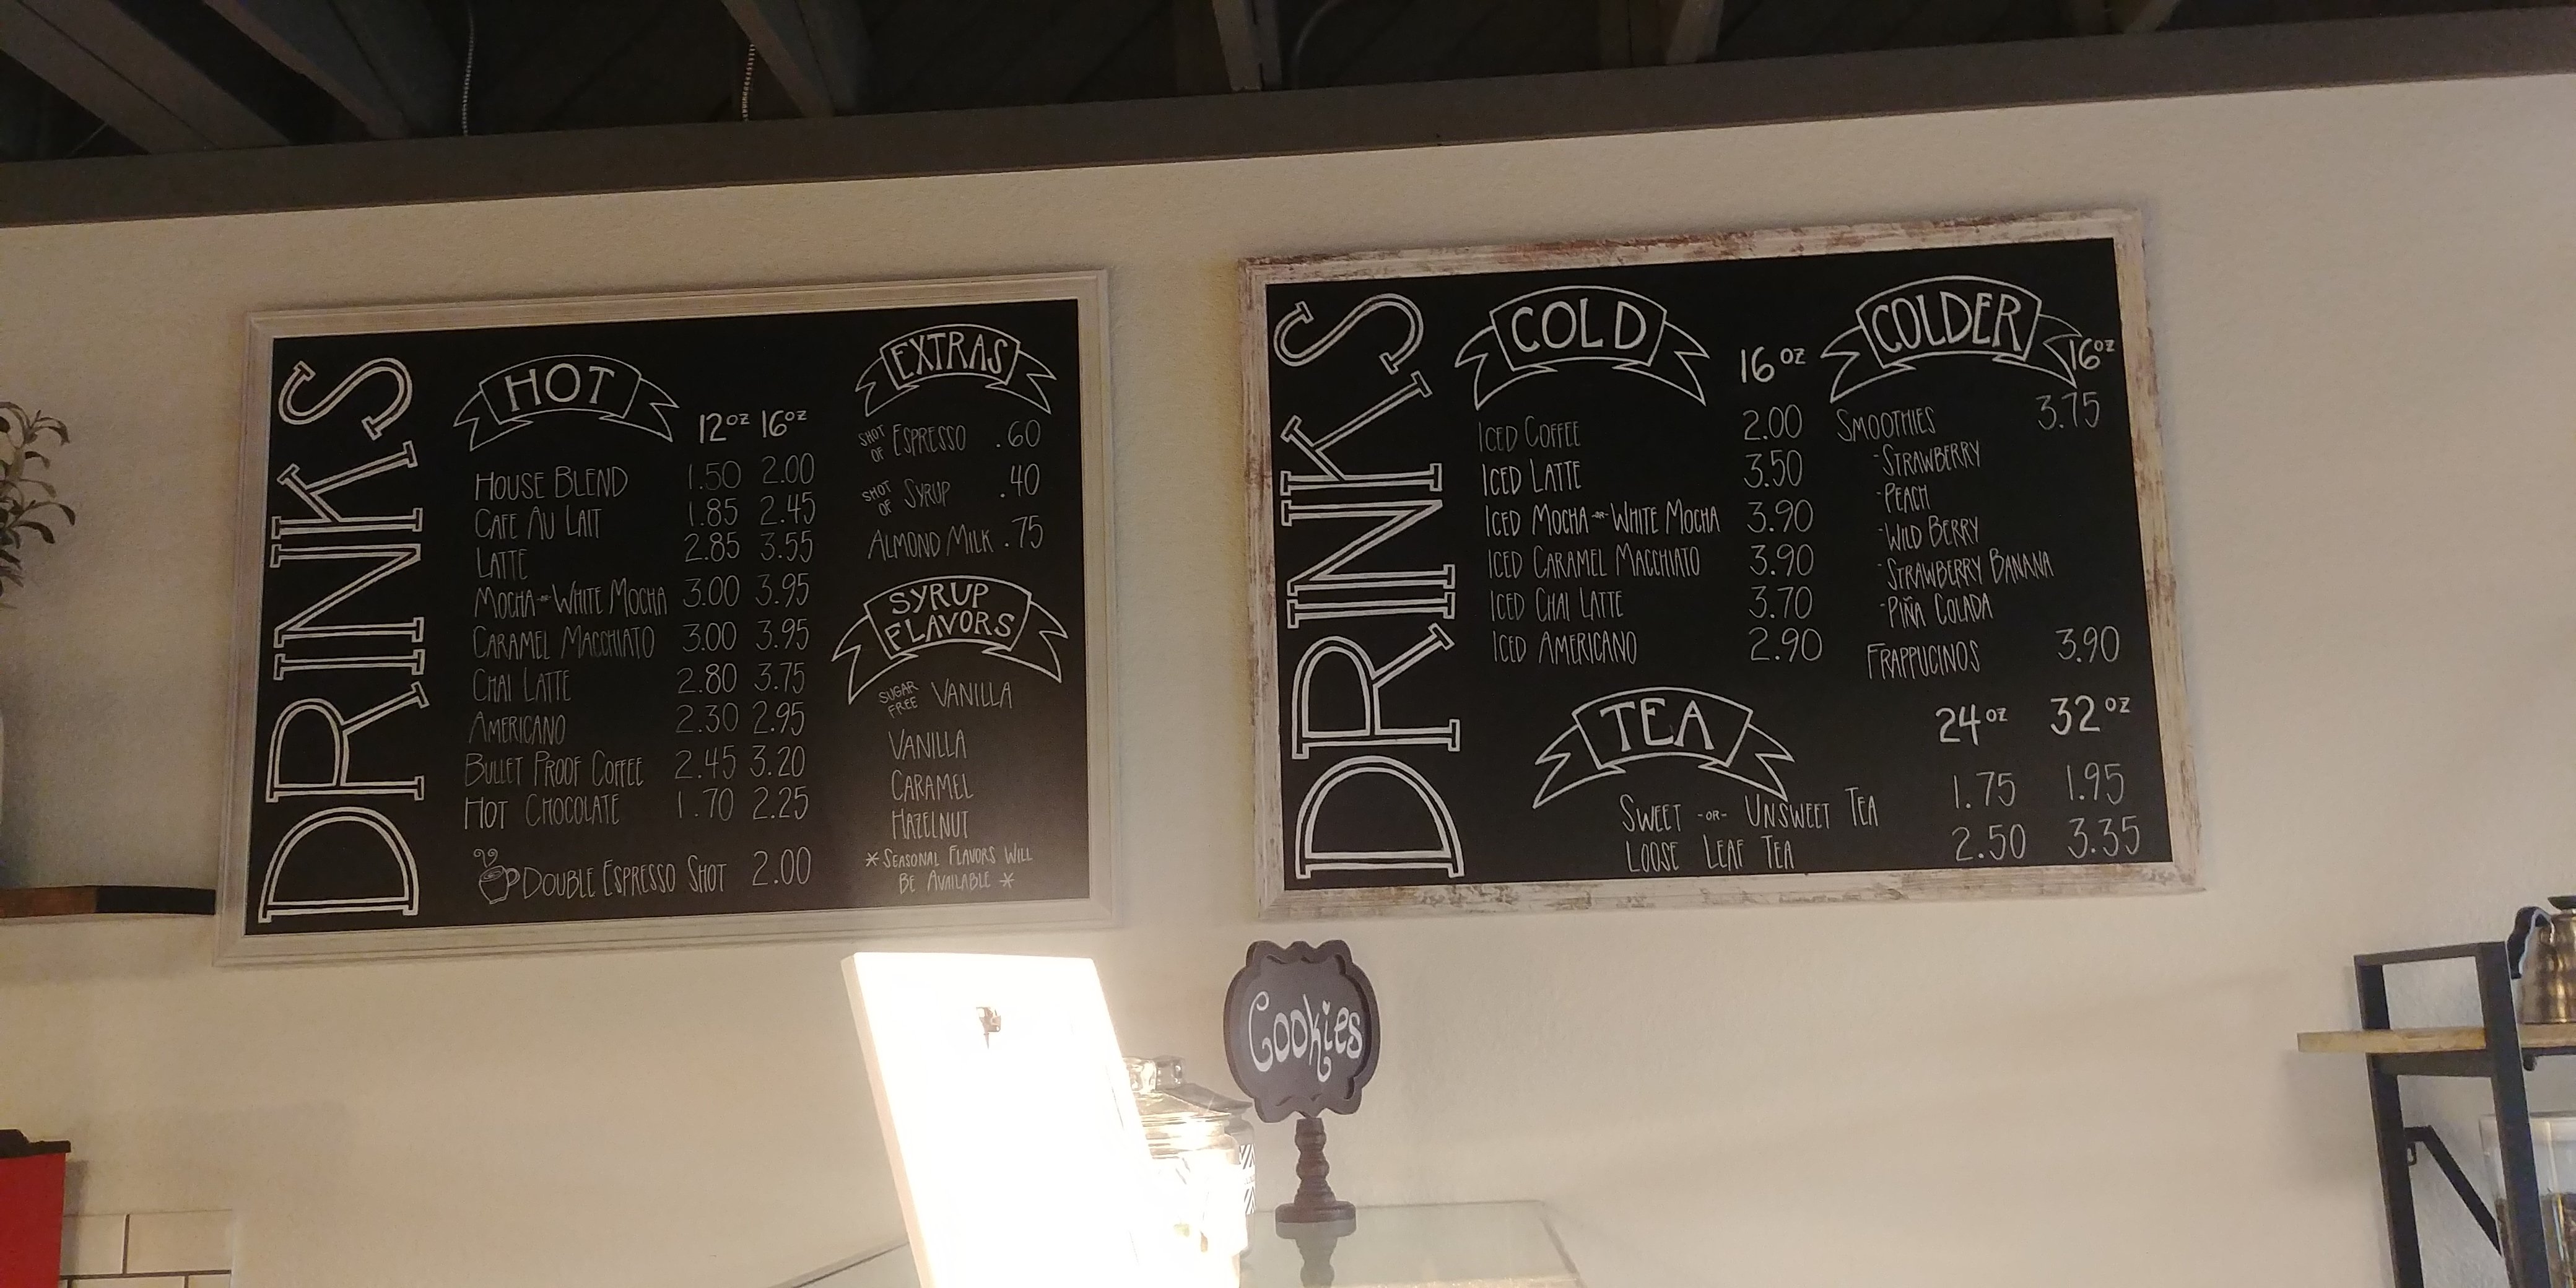 DRINKS
HOT
12oz 16oz
HOUSE BLEND 1.50 2.00
CAFE AU LAIT 1.85 2.45
LATTE 2.85 3.55
MOCHA -OR- WHITE MOCHA 3.00 3.95
CARAMEL MACCHIATO 3.00 3.95
CHAI LATTE 2.80 3.75
AMERICANO 2.30 2.95
BULLET PROOF COFFEE 2.45 3.20
HOT CHOCOLATE 1.70 2.25
DOUBLE ESPRESSO SHOT 2.00
EXTRAS
SHOT OF ESPRESSO .60
SHOT OF SYRUP .40
ALMOND MILK .75
SYRUP
FLAVORS
SUGAR FREE VANILLA
VANILLA
CARAMEL
HAZELNUT
* SEASONAL FLAVORS WILL
BE AVAILABLE *
DRINKS
COLD
16oz
ICED COFFEE 2.00
ICED LATTE 3.50
ICED MOCHA -OR- WHITE MOCHA 3.90
ICED CARAMEL MACCHIATO 3.90
ICED CHAI LATTE 3.70
ICED AMERICANO 2.90
COLDER
16oz
SMOOTHIES 3.75
-STRAWBERRY
-PEACH
-WILD BERRY
-STRAWBERRY BANANA
-PIÑA COLADA
FRAPPUCINOS 3.90
TEA
24oz 32oz
SWEET -OR- UNSWEET TEA 1.75 1.95
LOOSE LEAF TEA 2.50 3.35
Cookies